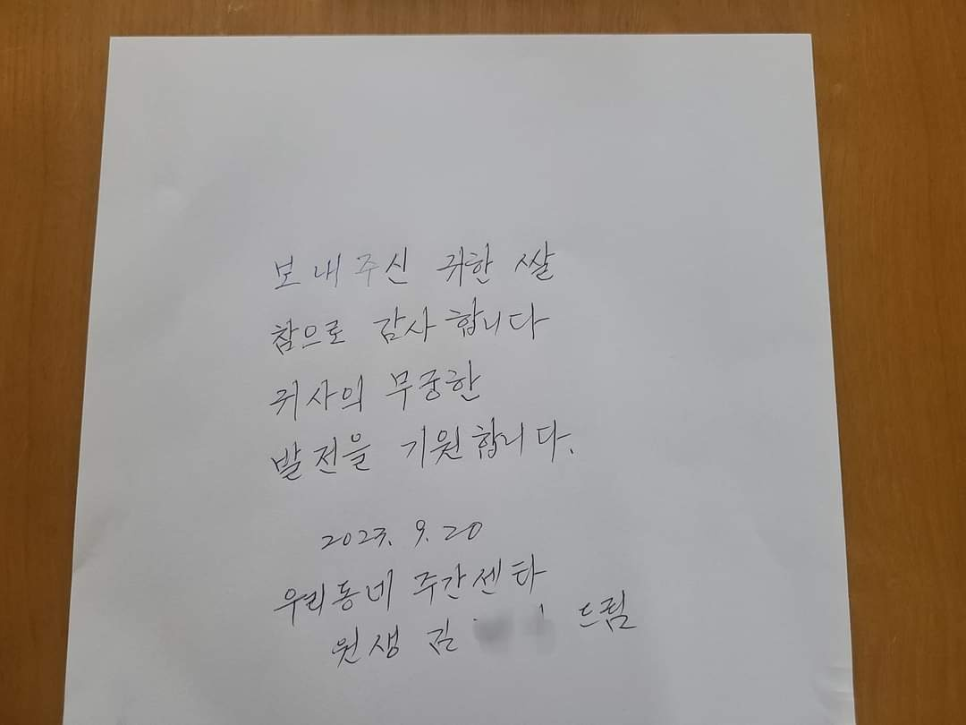 보내주신 귀한 쌀
참으로 감사합니다
귀사의 무궁한
발전을 기원합니다.
2023. 9. 20
우리동네 주간센타
원생 김 드림